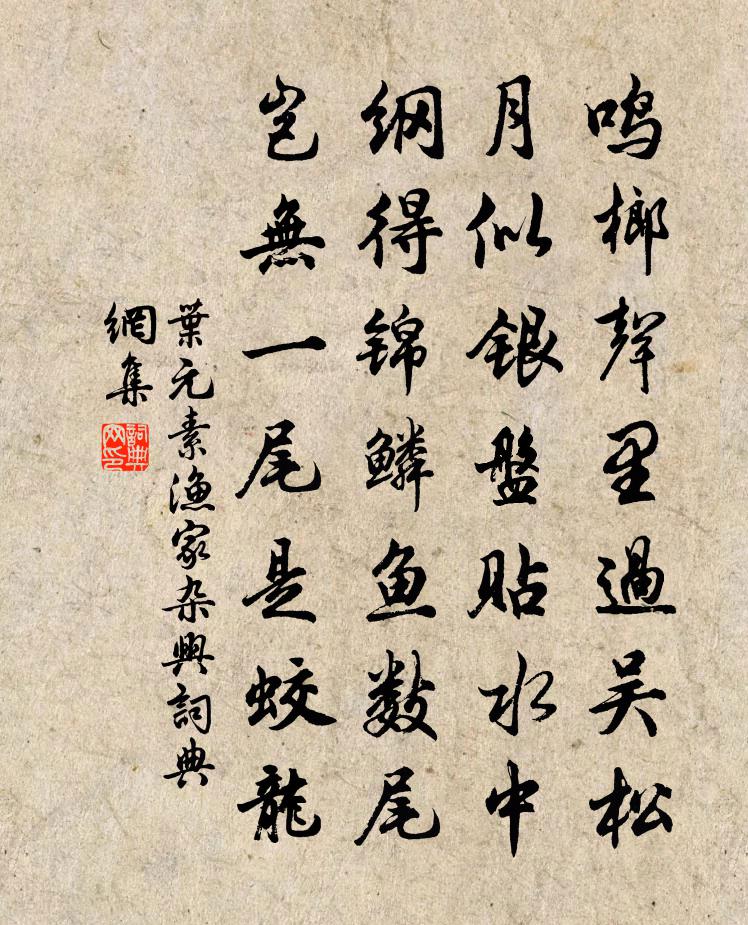 鸣榔聲里過吴松
月似银盤貼水中
纲得锦鳞鱼数尾
岂無一尾是蛟龍
葉元素渔家杂興詞典
網集
詞典网印